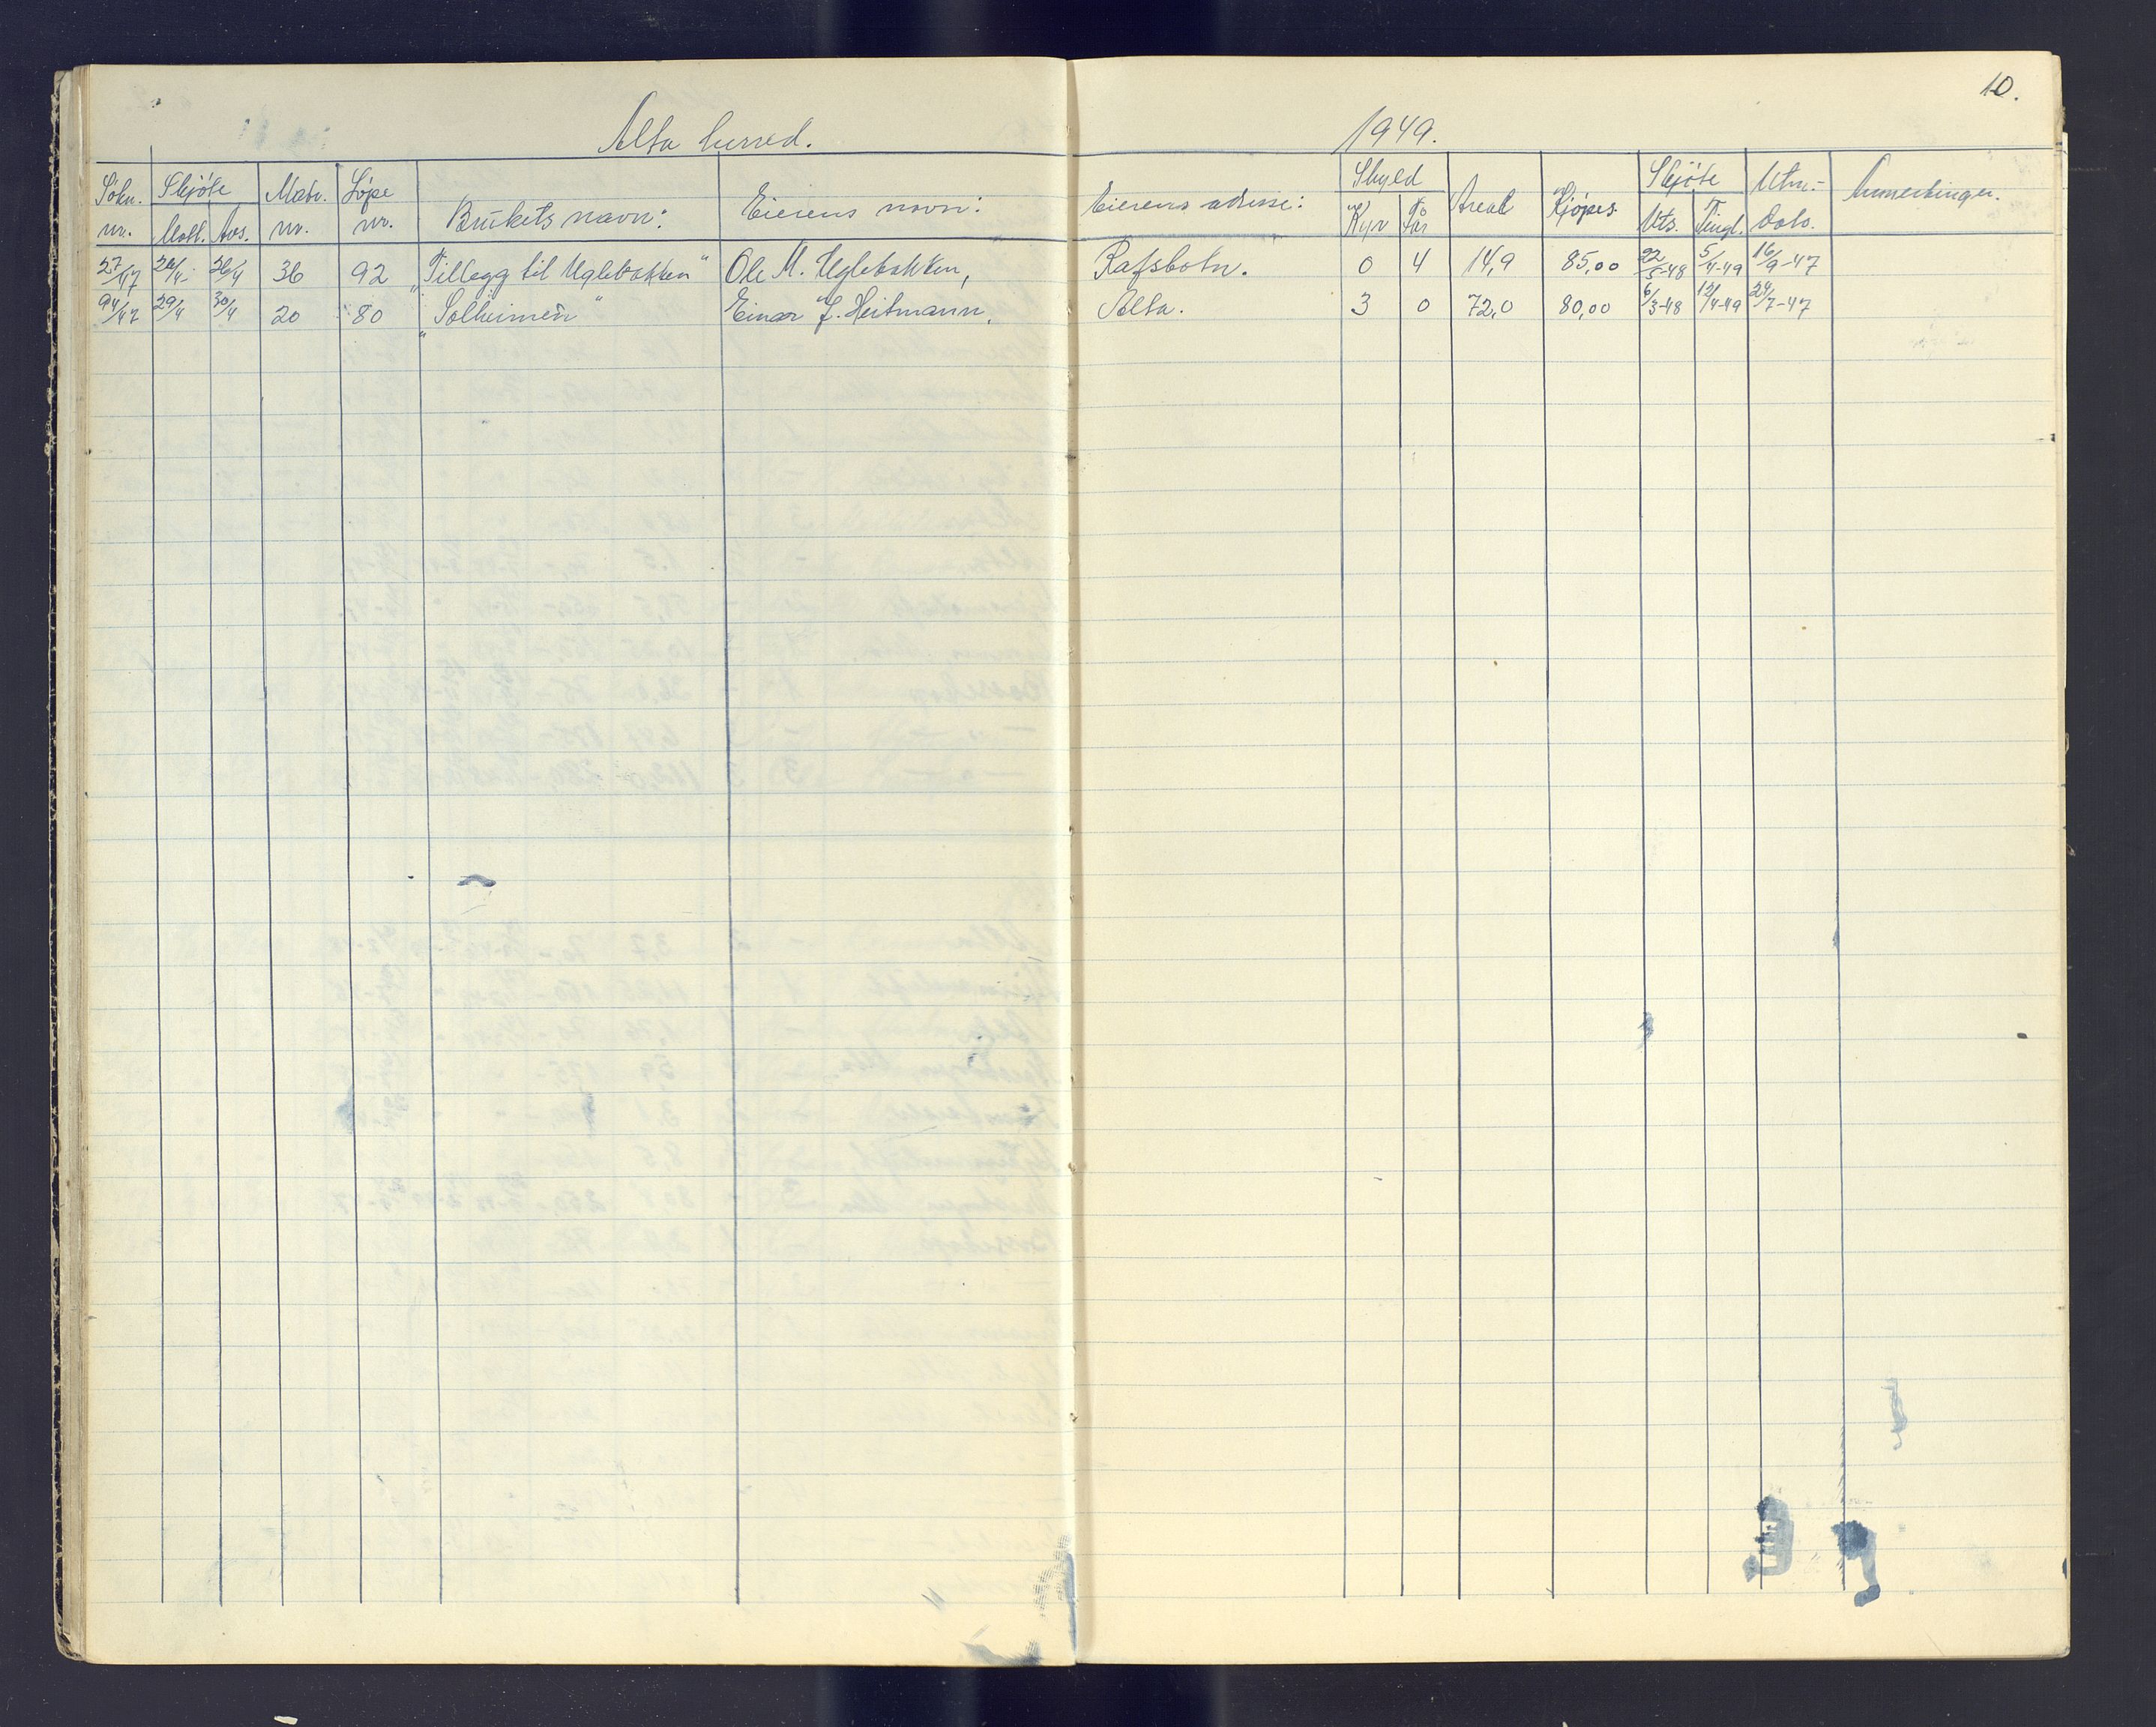 10.
Alta herred. 1949.
Søkn. nr. Skjöte Mott. Avs. Matr. nr. Löpe nr. Brukets navn: Eierens navn: Eierens adresse: Skyld Areal Kjøpes. Skjöte Uts. Tingl. Utm.- Dato. Anmerkinger.
27/47 26/4 36 92 "Tillegg til Uglebakken" Ole M. Uglebakken, Rafsbotn. 0 4 14,9 85,00 22/5-48 5/4-49 16/9-47
94/47 29/4 30/4 20 80 "Solheimen" Einar f. Heitmann. Alta. 3 0 72,0 80,00 6/3-48 12/4-49 24/7-47